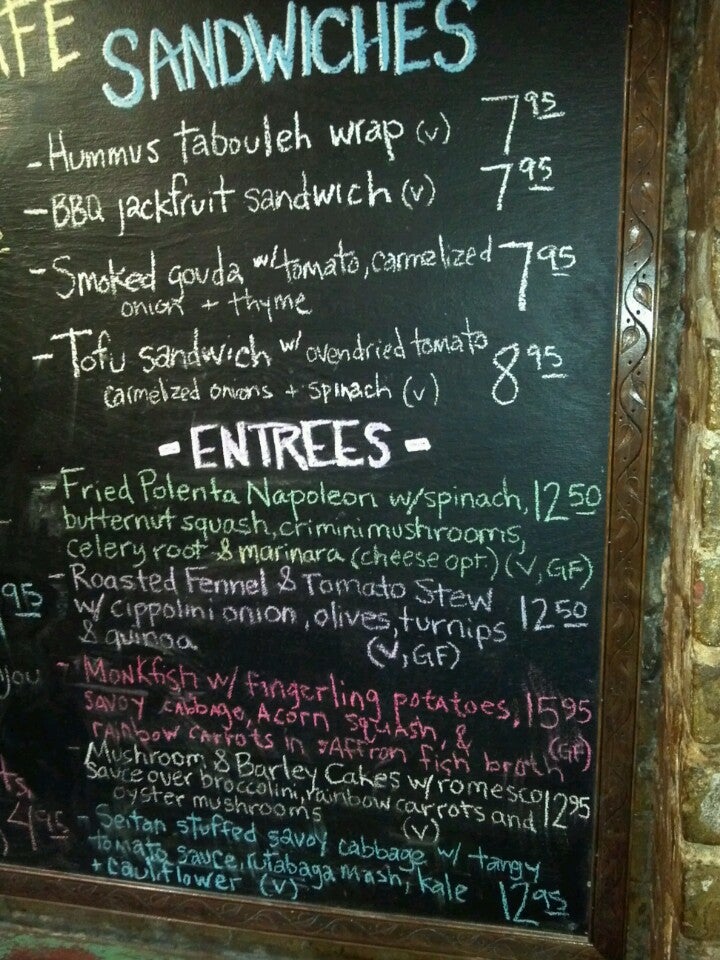 AFE
SANDWICHES
- Hummus tabouleh wrap (v) 7 95
- BBQ jackfruit sandwich (v) 7 95
- Smoked gouda w/tomato, carmelized 7 95
onion + thyme
- Tofu sandwich w/ ovendried tomato 8 95
carmelized onions + spinach (v)
- ENTREES -
- Fried Polenta Napoleon w/spinach, 12 50
butternut squash, crimini mushrooms,
celery root & marinara (cheese opt.) (V, GF)
- Roasted Fennel & Tomato Stew
w/ cippolini onion, olives, turnips 12 50
& quinoa (V, GF)
- Monkfish w/ fingerling potatoes, 15 95
savoy cabbage, Acorn squash, &
rainbow carrots in saffron fish broth (GF)
- Mushroom & Barley Cakes w/ romesco
sauce over broccolini, rainbow carrots and 12 95
oyster mushrooms (v)
- Seitan stuffed savoy cabbage w/ tangy
tomato sauce, rutabaga mash, kale
+ cauliflower (v) 12 95
95
you
ts
4 95